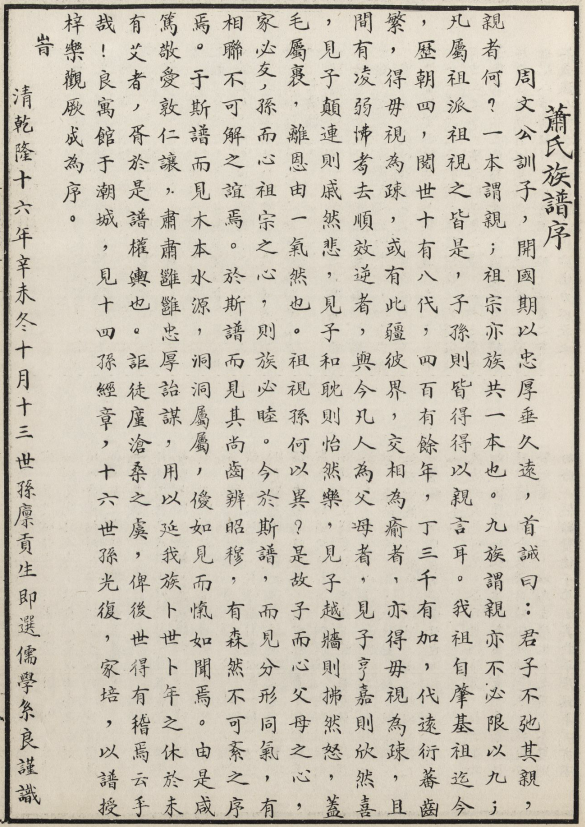 蕭氏族譜序
周文公訓子，開國期以忠厚垂久遠，首誡曰：君子不弛其親，
親者何？一本謂親；祖宗亦族共一本也。九族謂親亦不必限以九；
凡屬祖派祖視之皆是，子孫則皆得得以親言耳。我祖自肇基祖迄今
，歷朝四，閱世十有八代，四百有餘年，丁三千有加，代遠衍蕃齒
繁，得毋視為疎，或有此疆彼界，交相為瘉者，亦得毋視為疎，且
間有凌弱怫耇去順效逆者，與今凡人為父母者，見子亨嘉則欣然喜
，見子顛連則戚然悲，見子和耽則怡然樂，見子越牆則拂然怒，蓋
毛屬裏，離恩由一氣然也。祖視孫何以異？是故子而心父母之心，
家必友，孫而心祖宗之心，則族必睦。今於斯譜，而見分形同氣，有
相聯不可解之誼焉。於斯譜而見其尚齒辨昭穆，有森然不可紊之序
焉。于斯譜而見木本水源，洞洞屬屬，僾如見而愾如聞焉。由是咸
篤敬愛敦仁讓，肅肅雝雝忠厚詒謀，用以延我族卜世卜年之休於未
有艾者，胥於是譜權輿也。詎徒廑滄桑之虞，俾後世得有稽焉云乎
哉！良寓館于潮城，見十四孫經章，十六世孫光復，家培，以譜授
梓樂觀厥成為序。
旹
清乾隆十六年辛未冬十月十三世孫廩貢生即選儒學糸良謹識